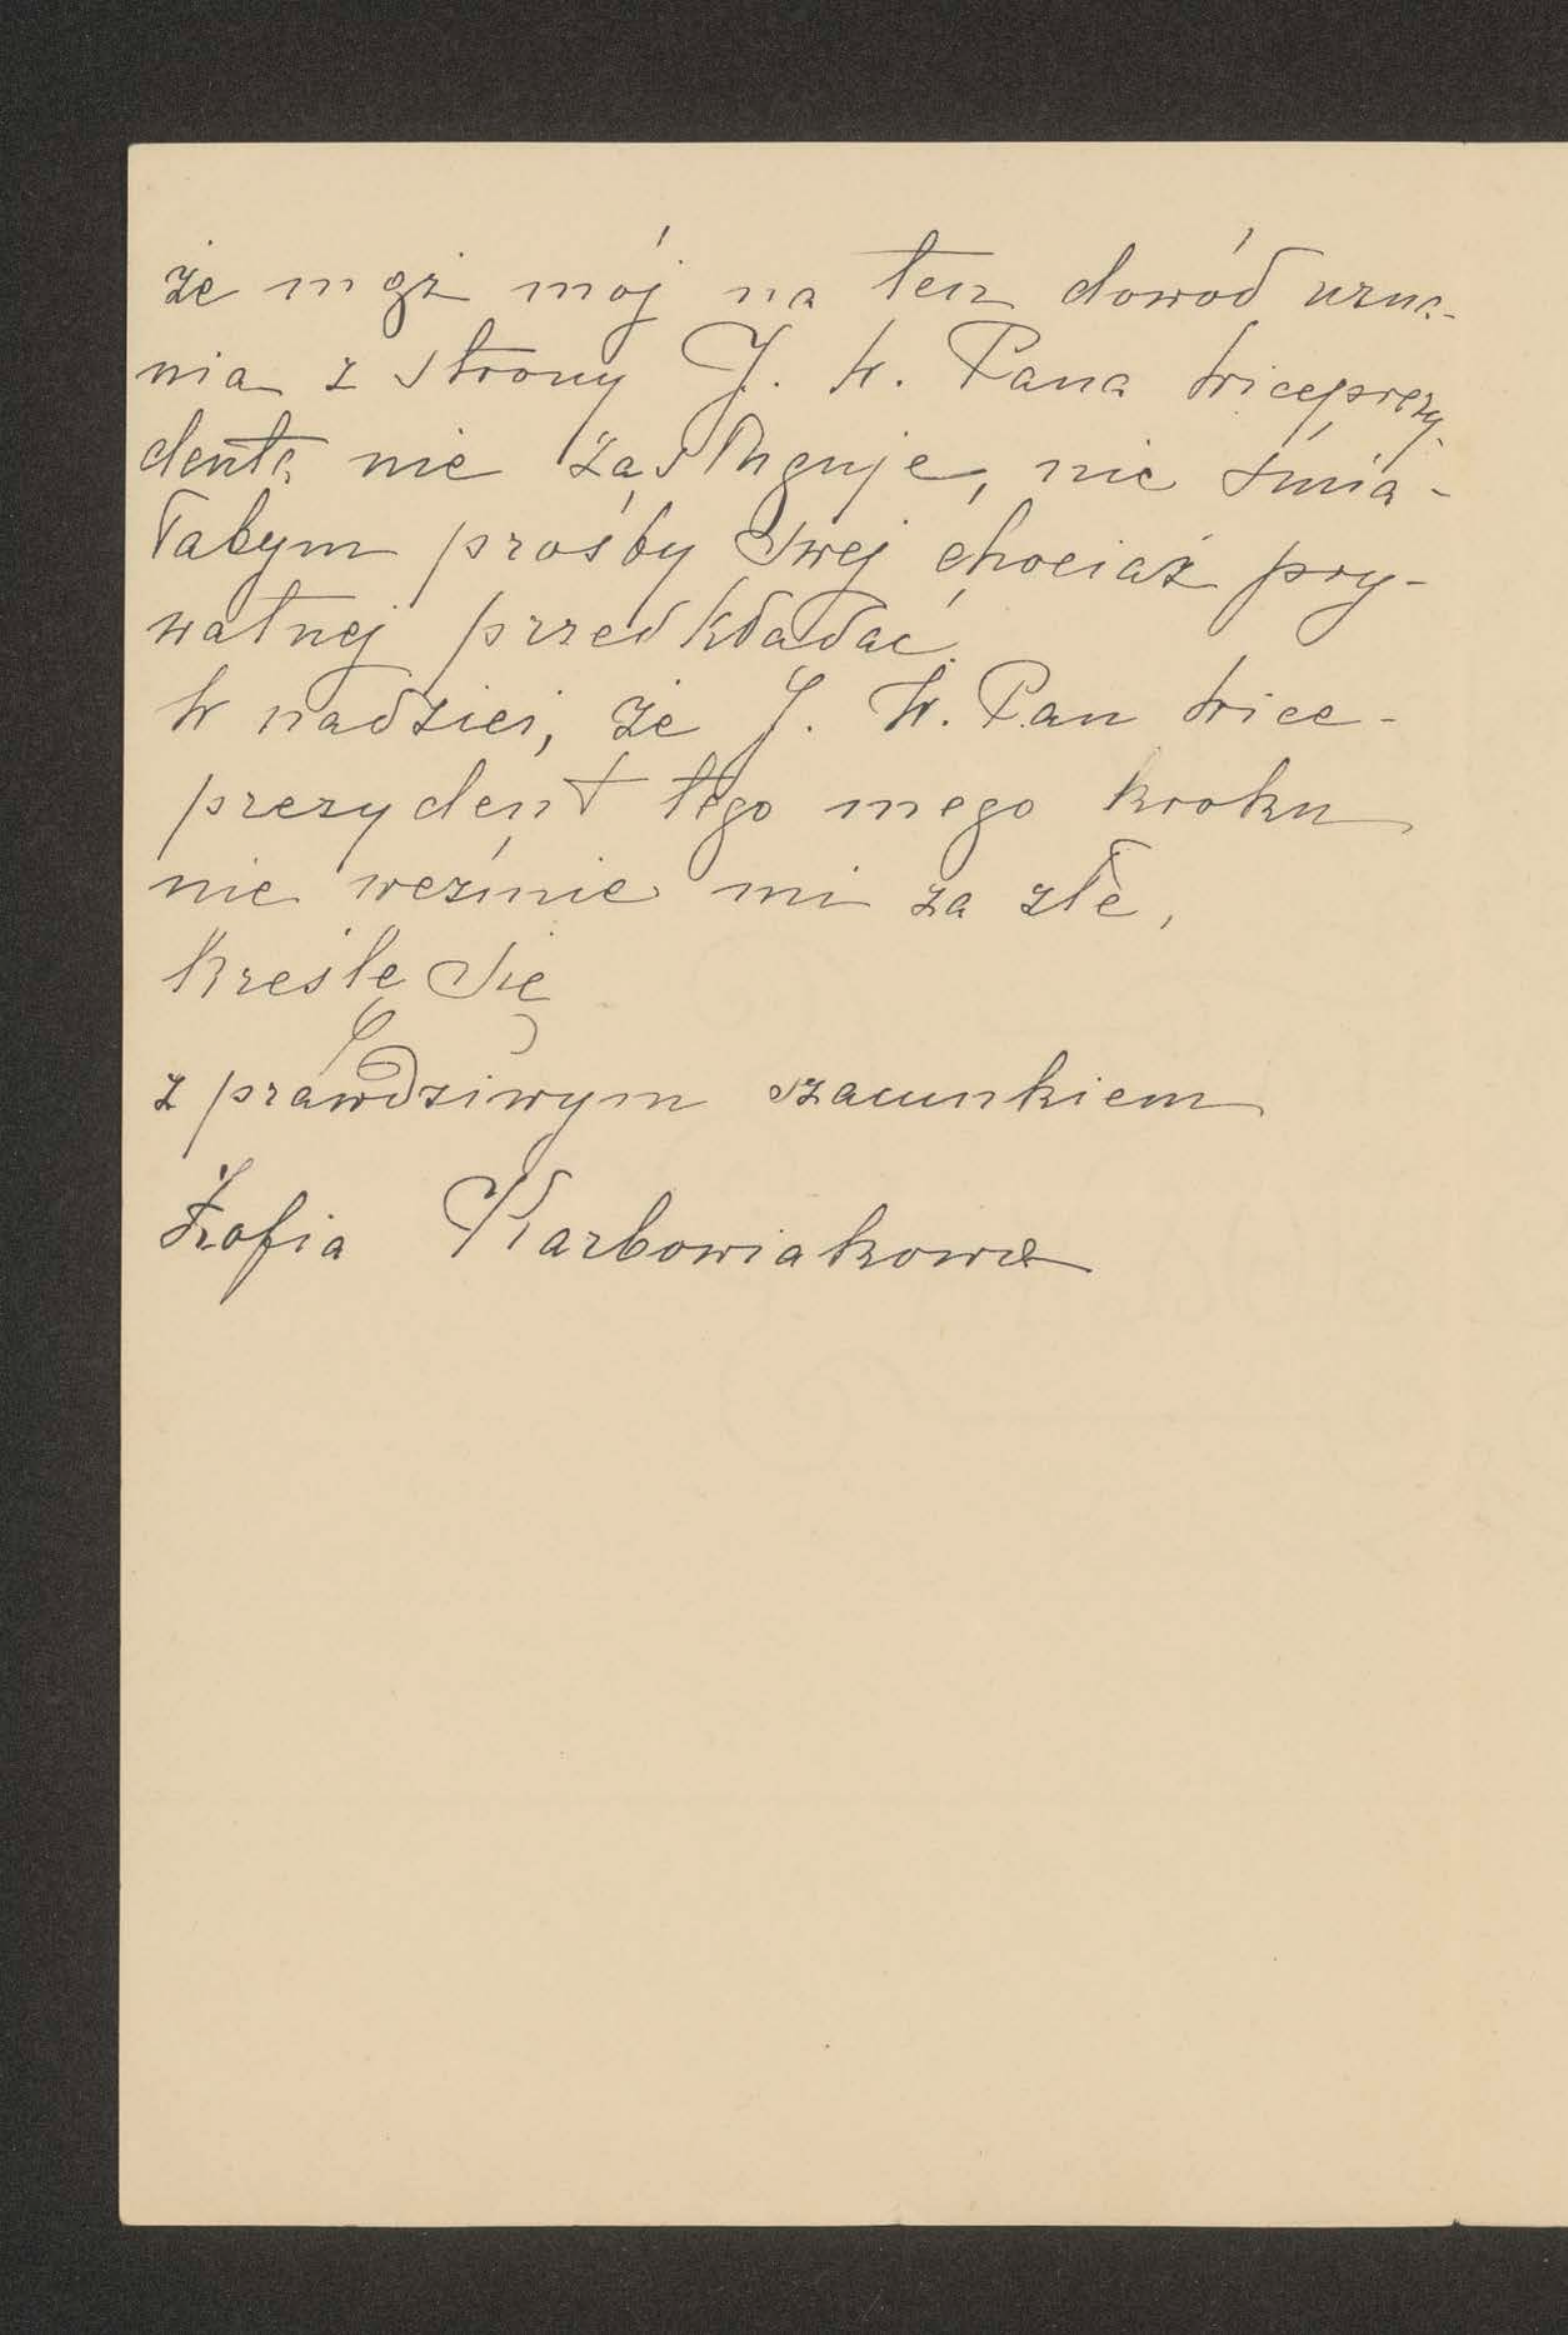 że mąż mój na ten dowód uzna-
nia z strony J. W. Pana Wiceprezy-
denta nie zasługuje, nie śmia-
łabym prośby swej chociaż pry-
watnej przedkładać.
W nadziei, że J. W. Pan Wice-
prezydent tego mego kroku
nie weźmie mi za złe,
kreślę się
z prawdziwym szacunkiem
Zofia Karbowiakowa